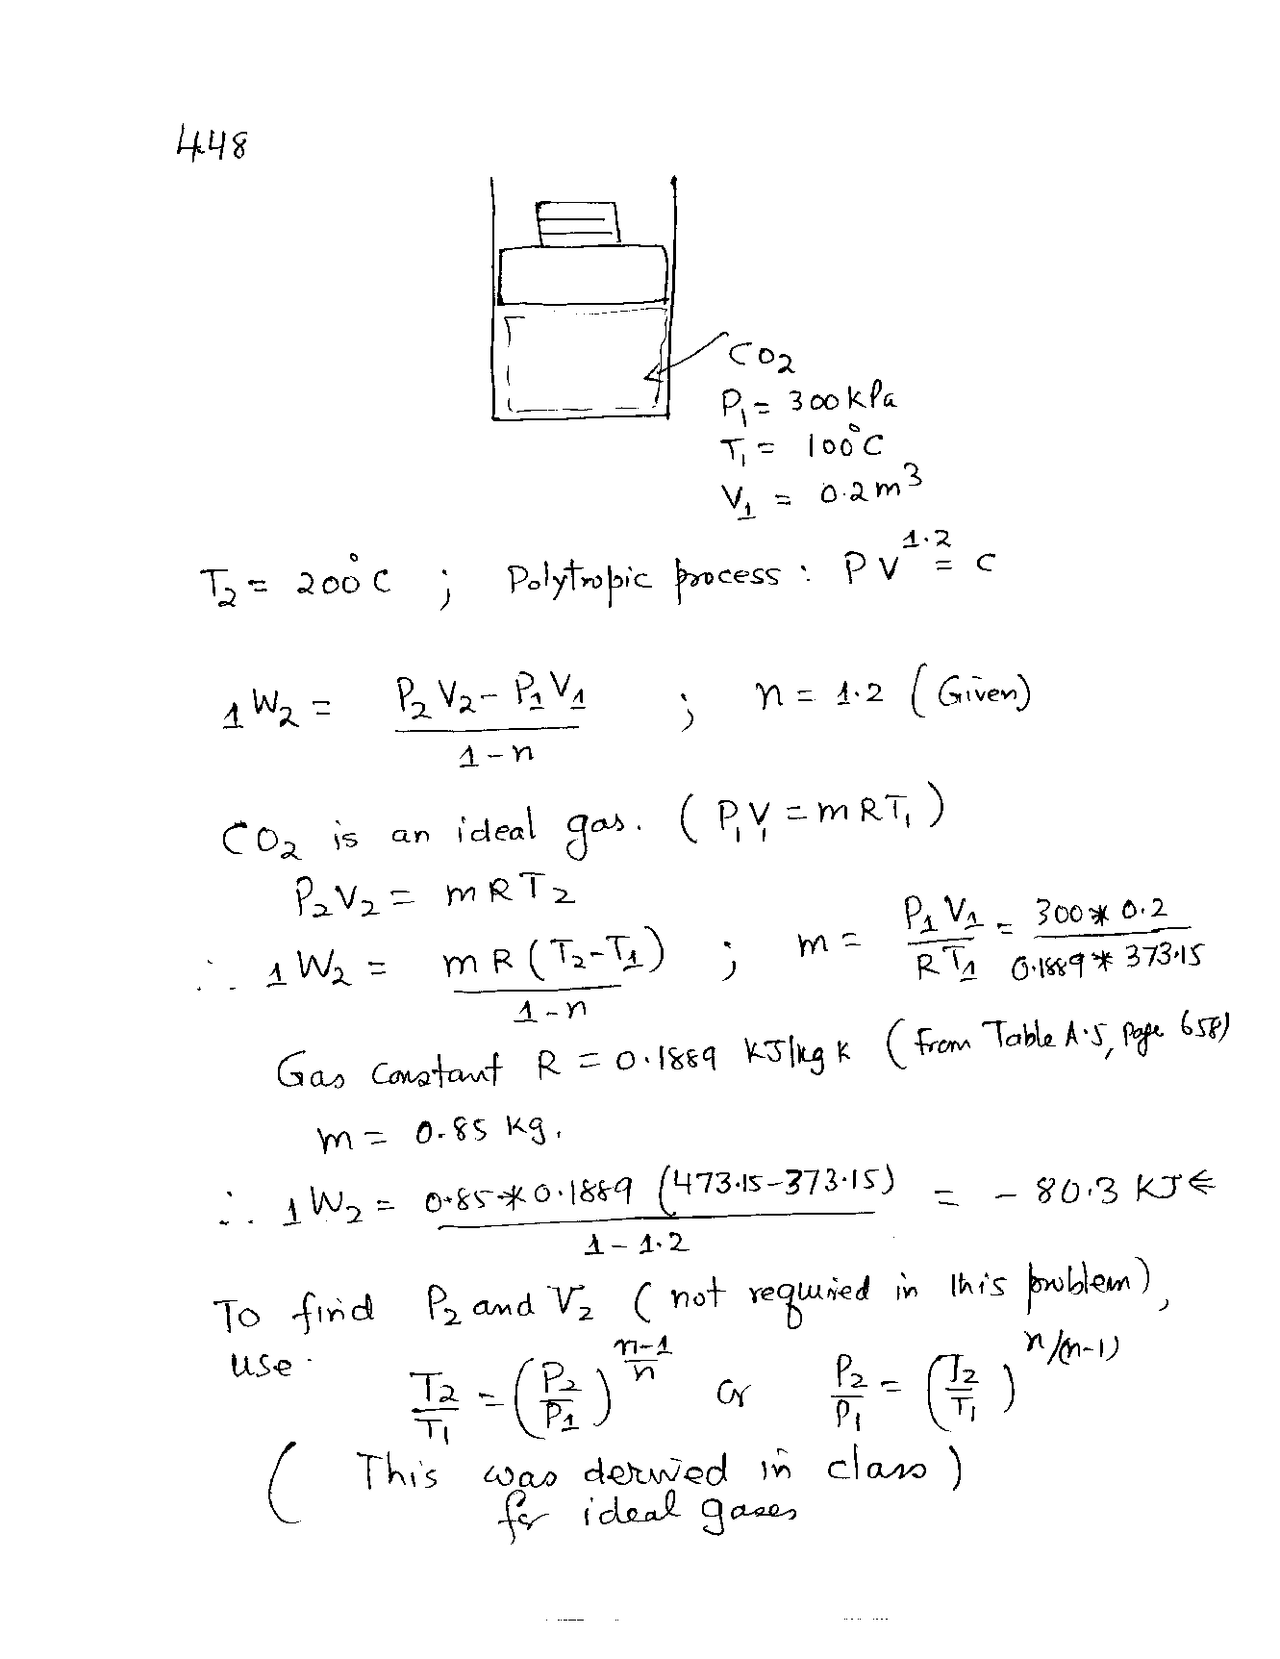 4.48
CO2
P1 = 300 kPa
T1 = 100°C
V1 = 0.2 m^3
T2 = 200°C ; Polytropic process : PV^1.2 = C
1W2 = (P2V2 - P1V1) / (1-n) ; n = 1.2 (Given)
CO2 is an ideal gas. (P1V1 = mRT1)
P2V2 = mRT2
∴ 1W2 = mR(T2-T1) / (1-n) ; m = P1V1 / RT1 = 300 * 0.2 / 0.1889 * 373.15
Gas constant R = 0.1889 KJ/kg K (from Table A.5, page 658)
m = 0.85 kg.
∴ 1W2 = 0.85 * 0.1889 (473.15-373.15) / (1-1.2) = - 80.3 KJ ←
To find P2 and V2 (not required in this problem),
use.
T2/T1 = (P2/P1)^(n-1)/n or P2/P1 = (T2/T1)^n/(n-1)
( This was derived in class )
for ideal gases